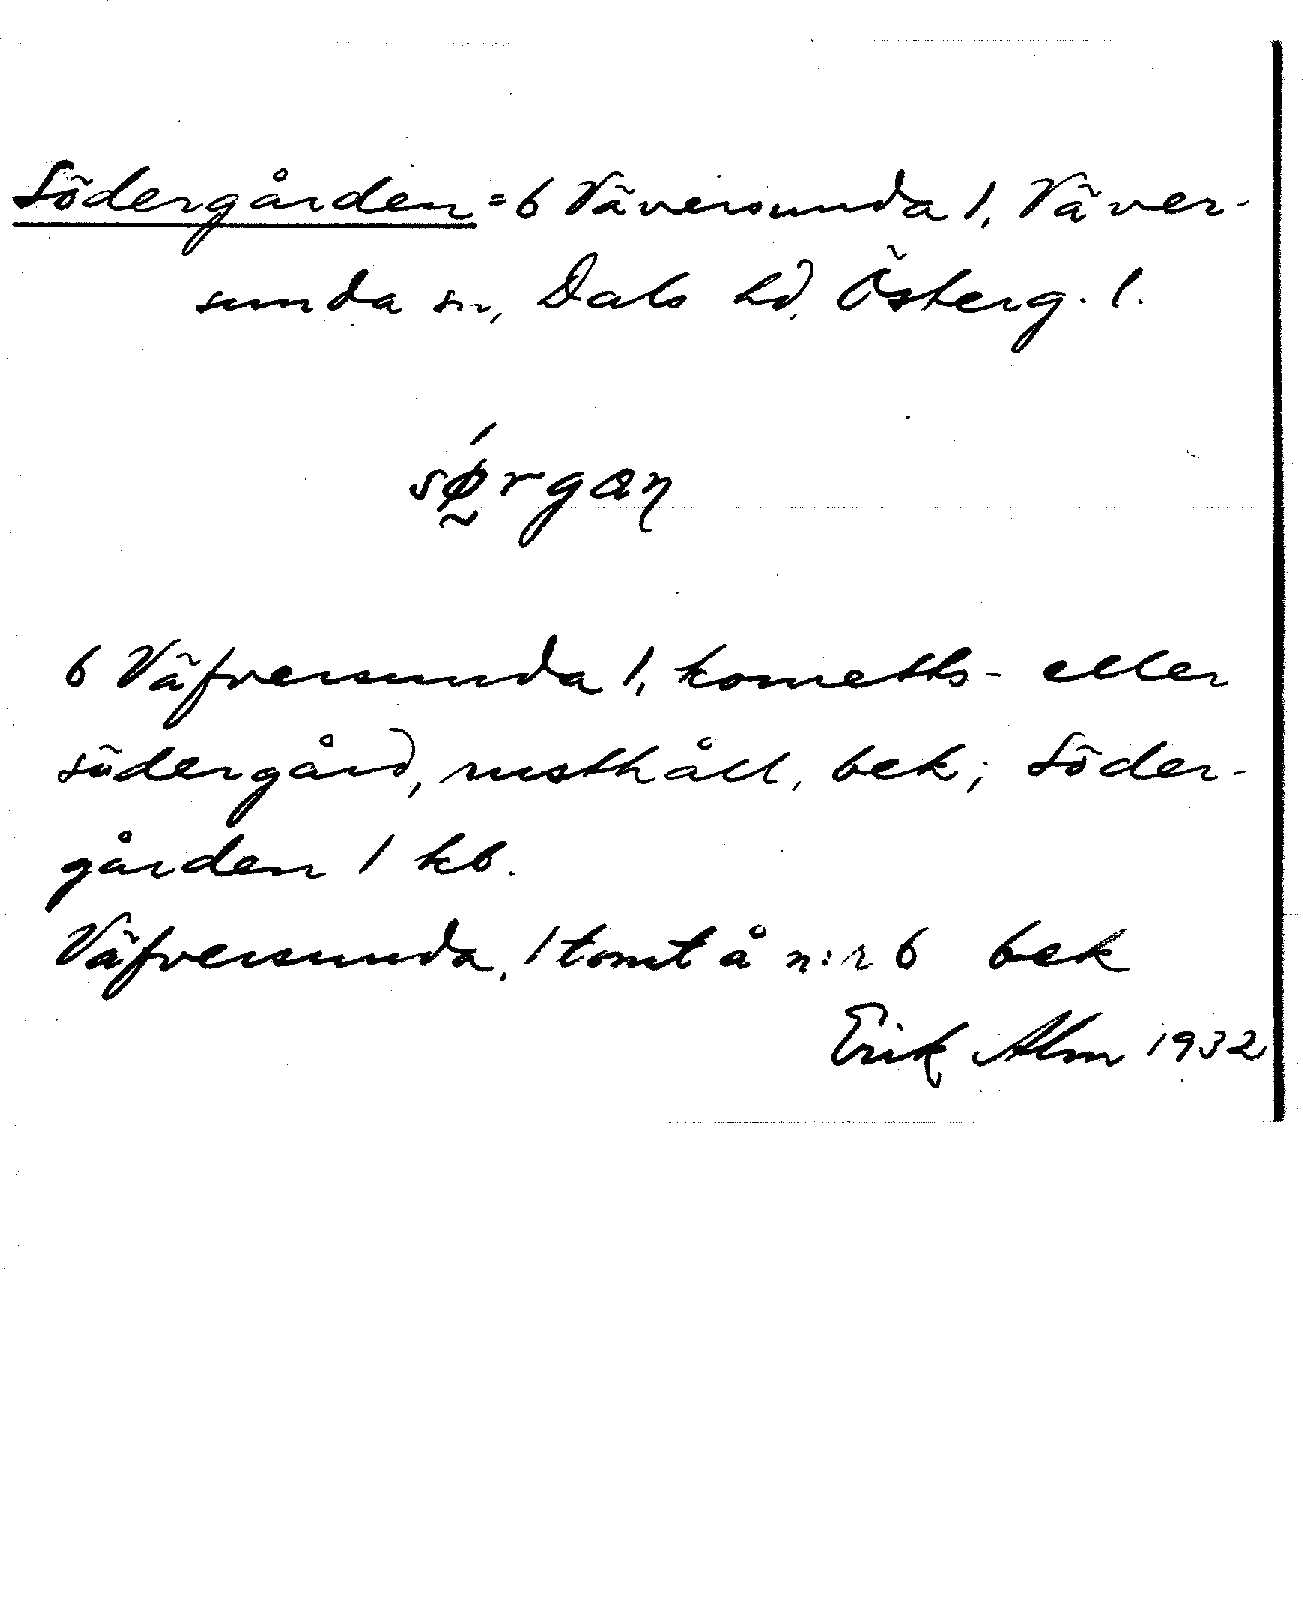 Södergården = 6 Väversunda 1, Väver-
sunda sn, Dals hd, Österg. l.
sǿ̰rgaꞃ
6 Väfversunda 1, kornetts- eller
södergård, rusthåll, bek; Söder-
gården 1 kb.
Väfversunda, 1 tomt å n:r 6 bek
Erik Alm 1932